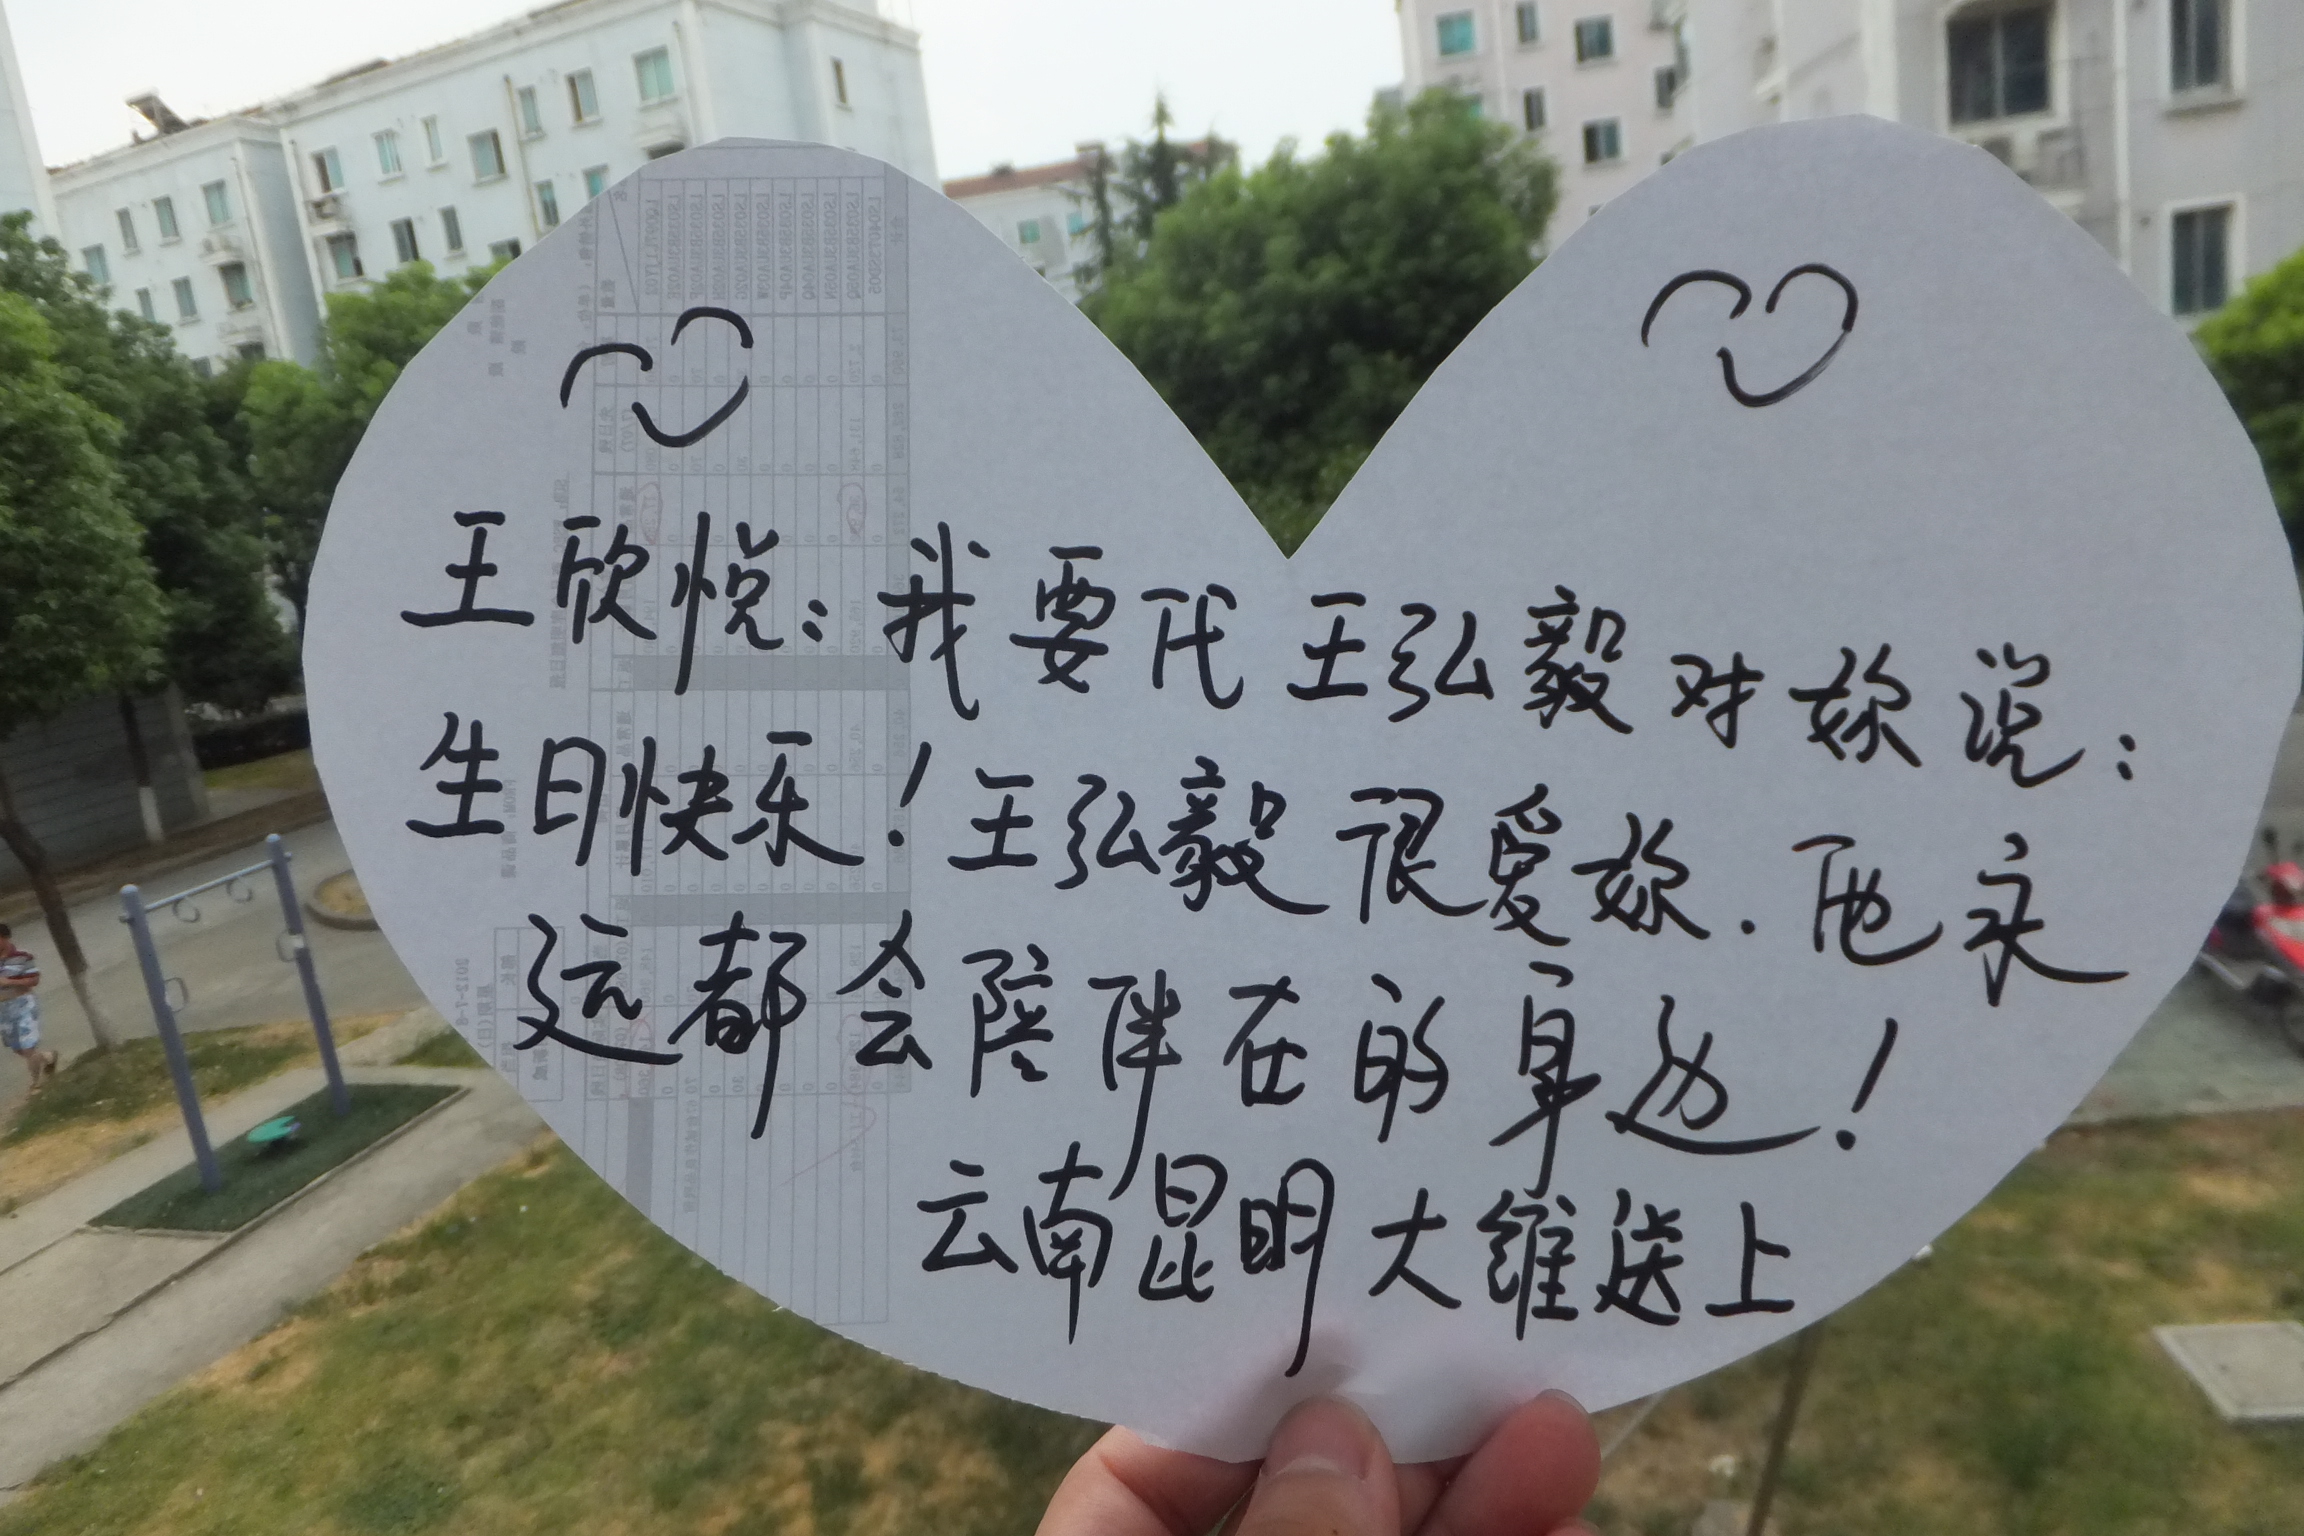 王欣悦：我要代王弘毅对妳说：
生日快乐！王弘毅很爱妳．他永
远都会陪伴在的身边！
云南昆明大维送上